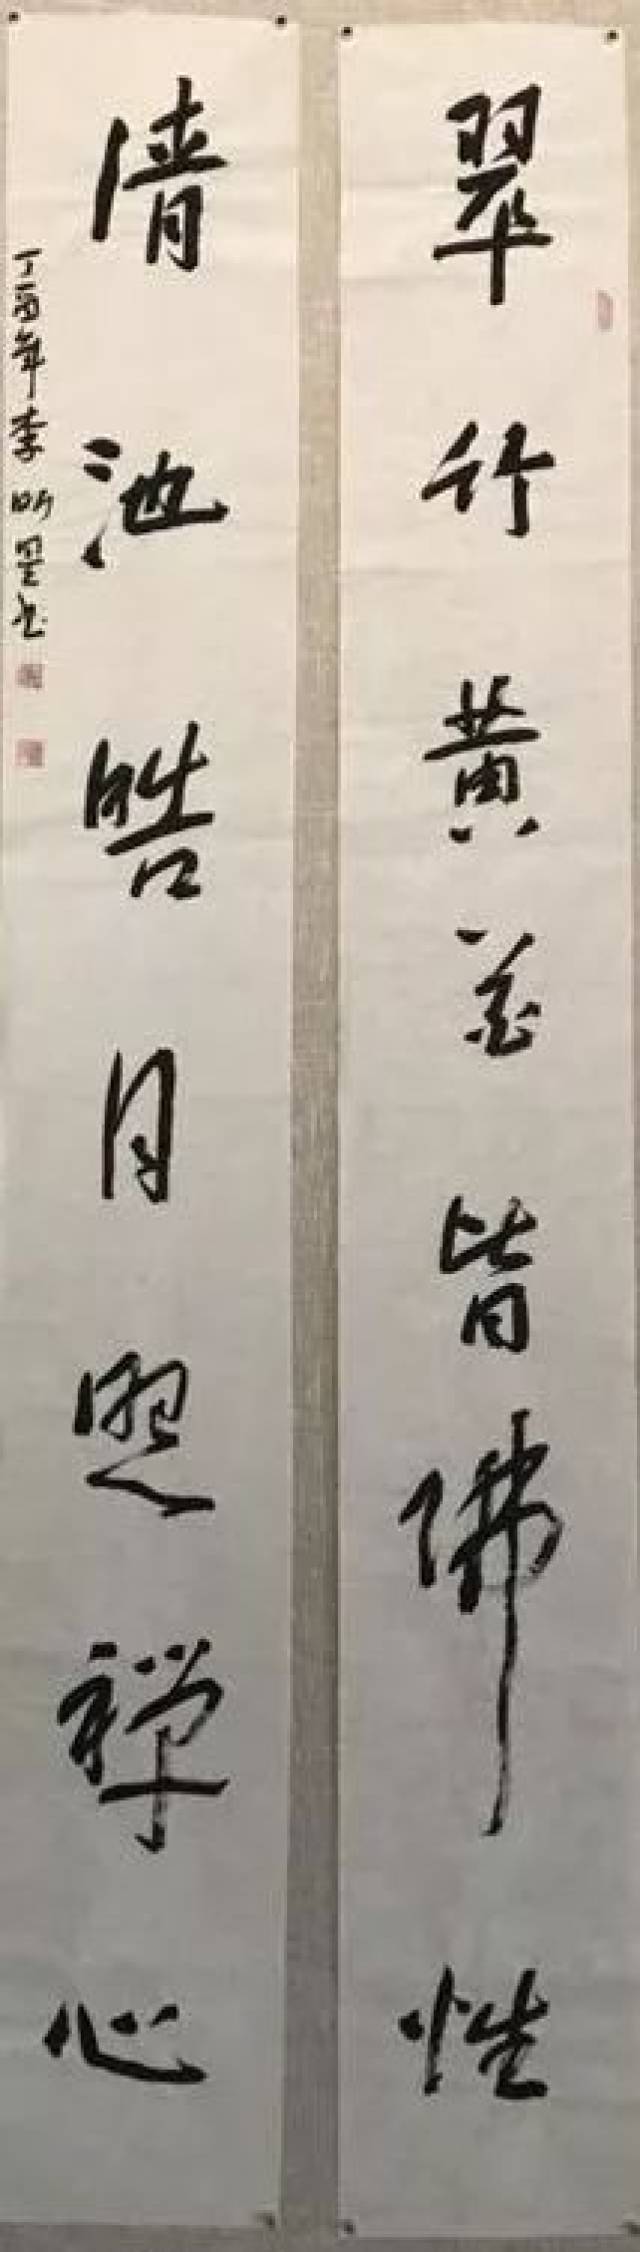 翠竹黄花皆佛性
清池皓月照禅心
丁酉年李明星书